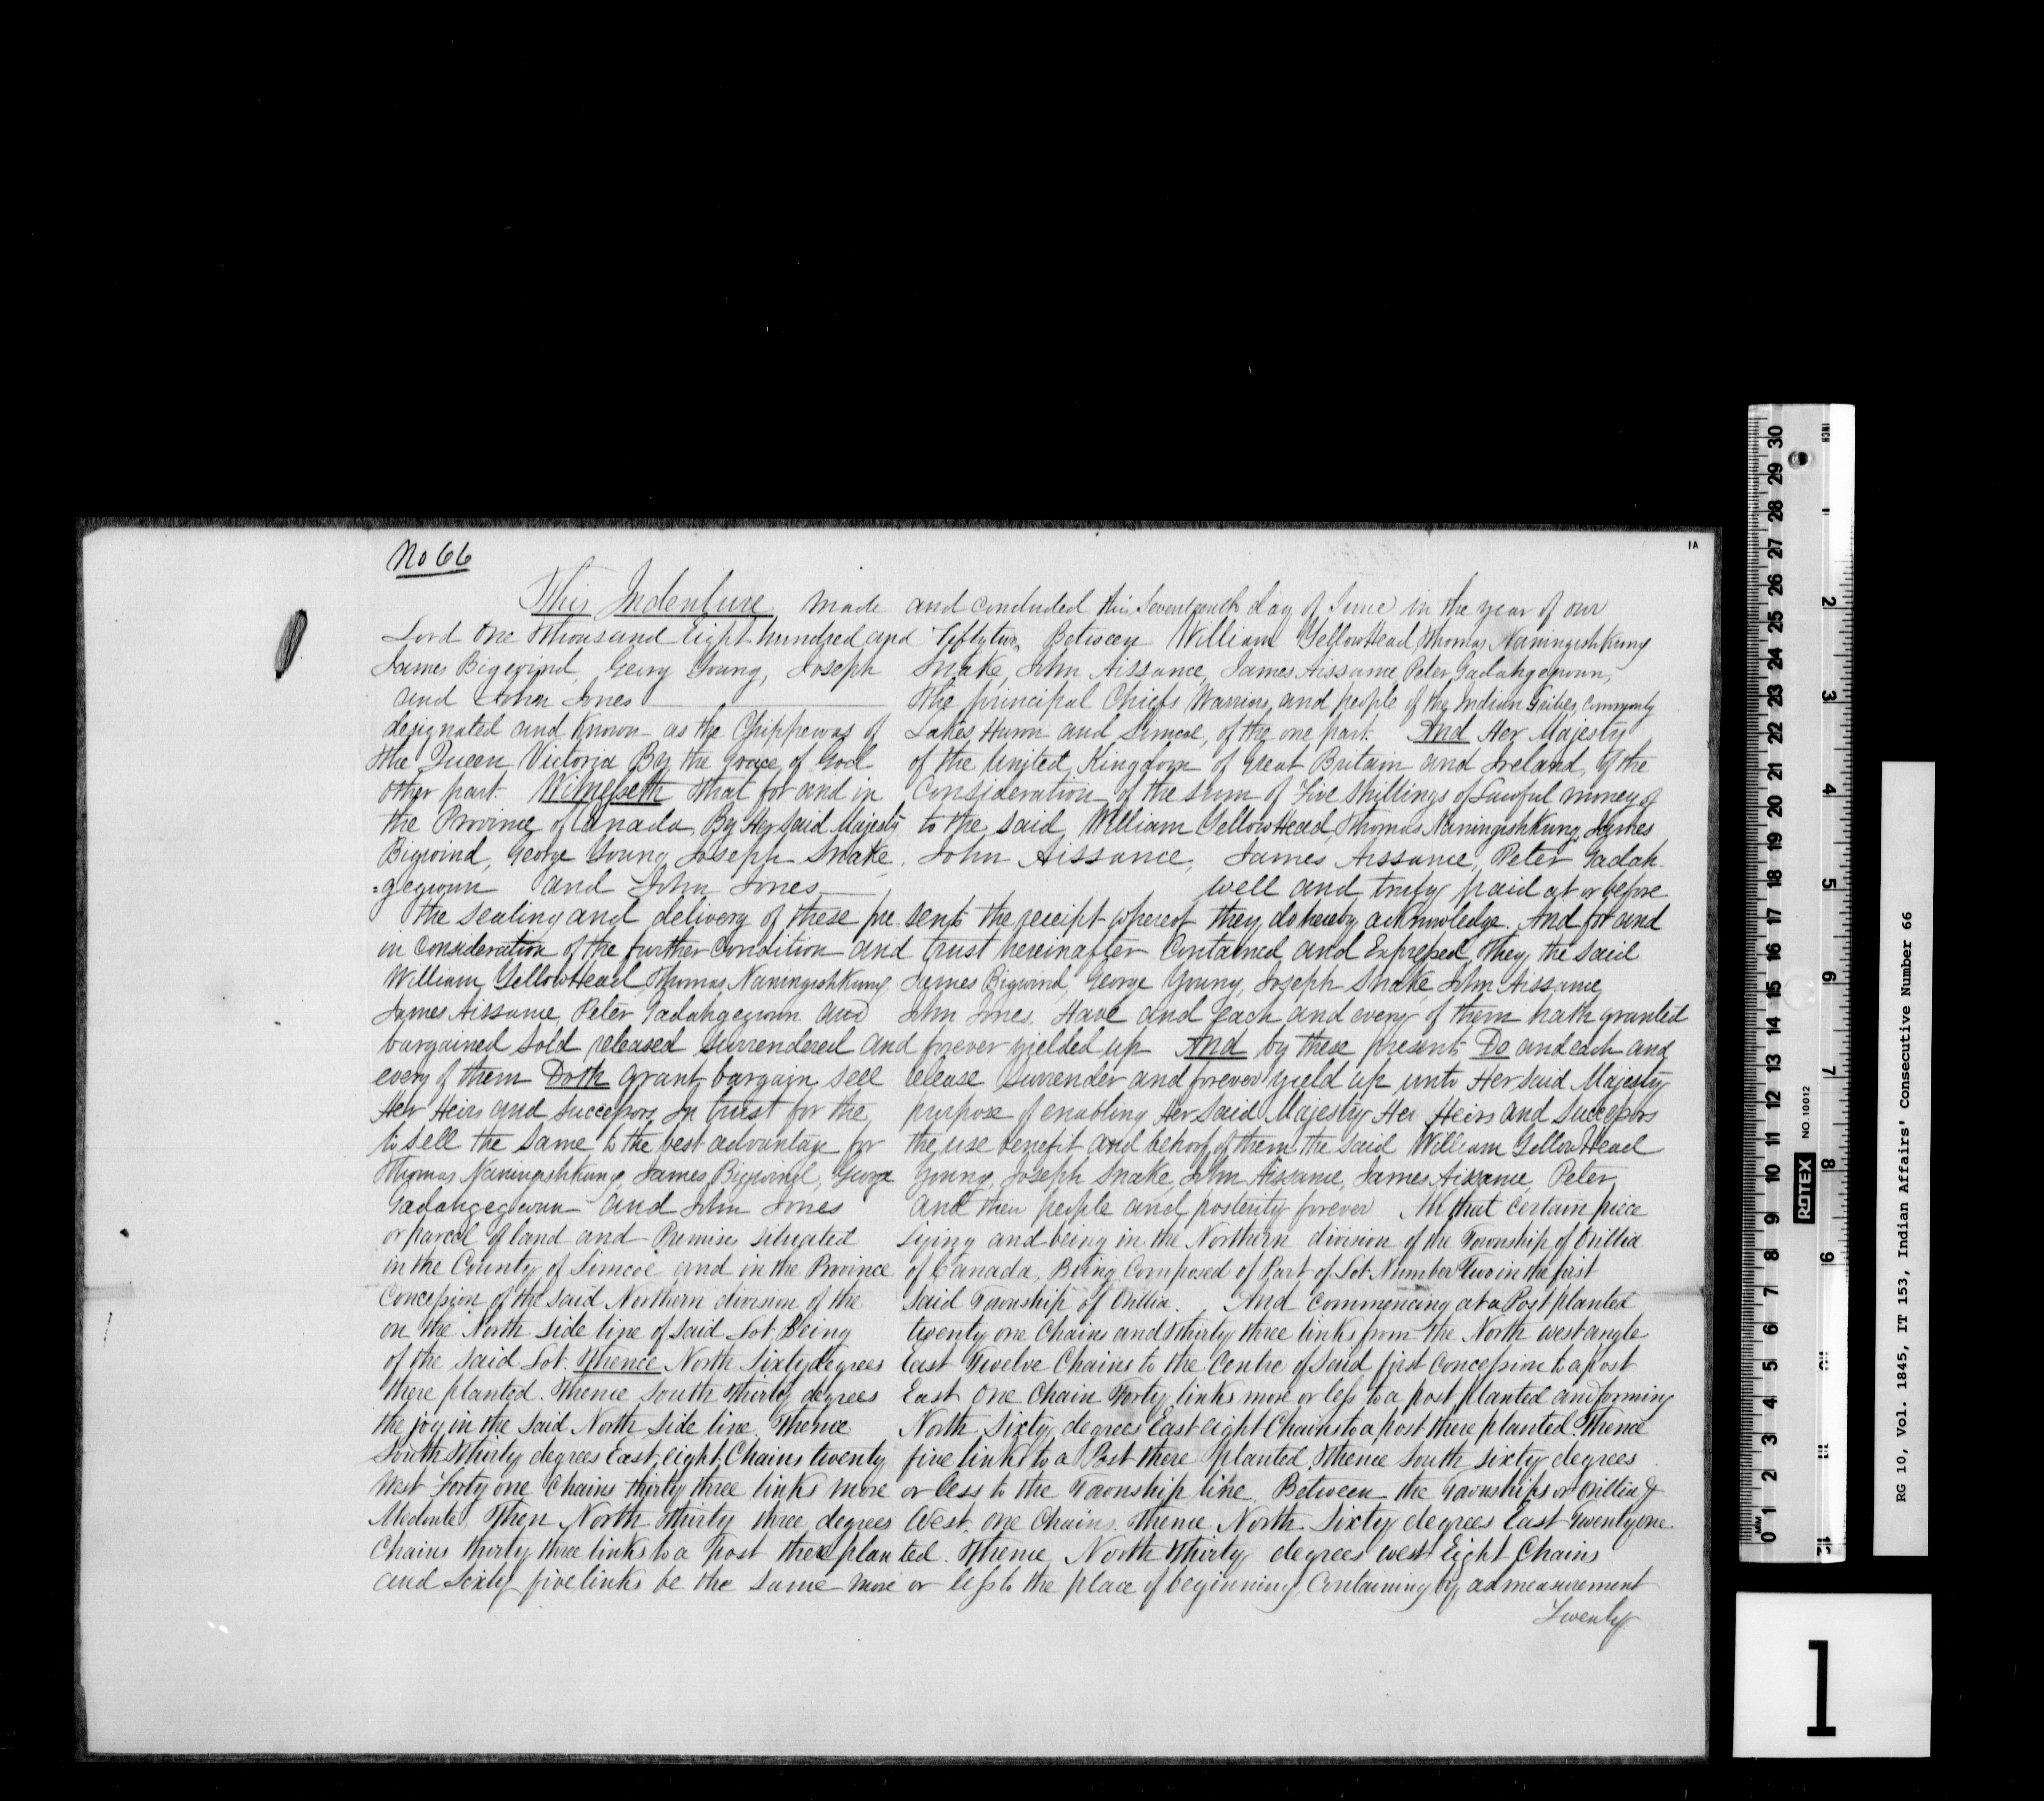 No 66
1A
This Indenture made and concluded this Seventeenth day of June in the year of our
Lord One Thousand Eight hundred and Fifty two, Between William YellowHead, Thomas Naningishkung
James Bigwind, Georg Young, Joseph Snake, John Aissance, James Aissance, Peter Gadahgegwun,
and John Jones The principal Chiefs Warriors, and people of the Indian Tribes, Commonly
designated and Known as the Chippewas of Lakes Huron and Simcoe, of the one part. And Her Majesty
the Queen Victoria By the Grace of God of the United Kingdom of Great Britain and Ireland, Of the
other part. Witnesseth that for and in Consideration of the sum of Five Shillings of Lawful money of
the Province of Canada, By Her said Majesty to the said, William YellowHead, Thomas Naningishkung, James
Bigwind, George Young, Joseph Snake, John Aissance, James Aissance, Peter Gadah-
=gegwun and John Jones well and truly paid at or before
the sealing and delivery of these pre sents the receipt whereof they do hereby acknowledge. And for and
in Consideration of the further Condition and trust hereinafter Contained and Expressed, They the said
William YellowHead, Thomas Naningishkung, James Bigwind, George Young, Joseph Snake, John Aissance,
James Aissance, Peter Gadahgegwun and John Jones. Have and each and every of them hath granted
bargained sold released surrendered and forever yielded up And by these presents Do and each and
every of them Doth grant, bargain, sell release surrender and forever yield up unto Her said Majesty
Her Heirs and Successors, In trust for the purpose of enabling Her said Majesty Her Heirs and Successors
to sell the same to the best advantage for the use benefit and behoof of them the said William YellowHead
Thomas Naningishkung, James Bigwind, George Young, Joseph Snake, John Aissance, James Aissance, Peter
Gadahgegwun and John Jones and their people and posterity forever All that Certain piece
or parcel of land and Premises situated lying and being in the Northern division of the Township of Orillia
in the County of Simcoe and in the Province of Canada, Being Composed of Part of Lot Number Two in the first
Concession of the said Northern division of the said Township of Orillia. And Commencing at a Post planted
on the North side line of said Lot, Being twenty one Chains and thirty three links from the North west angle
of the said Lot. Thence North Sixty degrees East Twelve Chains to the Centre of said first Concession to a post
there planted. Thence South Thirty degrees East One Chain Forty links more or less to a post planted and forming
the jog in the said North side line. Thence North Sixty degrees East eight Chains to a post there planted. Thence
South thirty degrees East, eight Chains twenty five links to a Post there planted. Thence South sixty degrees
West Forty one Chains thirty three links more or less to the Township line. Between the Townships of Orillia &
Medonte. Then North Thirty three degrees West, one Chains. Thence North Sixty degrees East Twenty one
Chains thirty three links to a Post there planted. Thence North thirty degrees west Eight Chains
and Sixty five links be the same more or less to the place of beginning, Containing by admeasurement
Twenty
RG 10, Vol. 1845, IT 153, Indian Affairs' Consecutive Number 66
ROTEX NO. 10012
INCH
1 2 3 4 5 6 7 8 9 10 11 12
MM
0 1 2 3 4 5 6 7 8 9 10 11 12 13 14 15 16 17 18 19 20 21 22 23 24 25 26 27 28 29 30
1